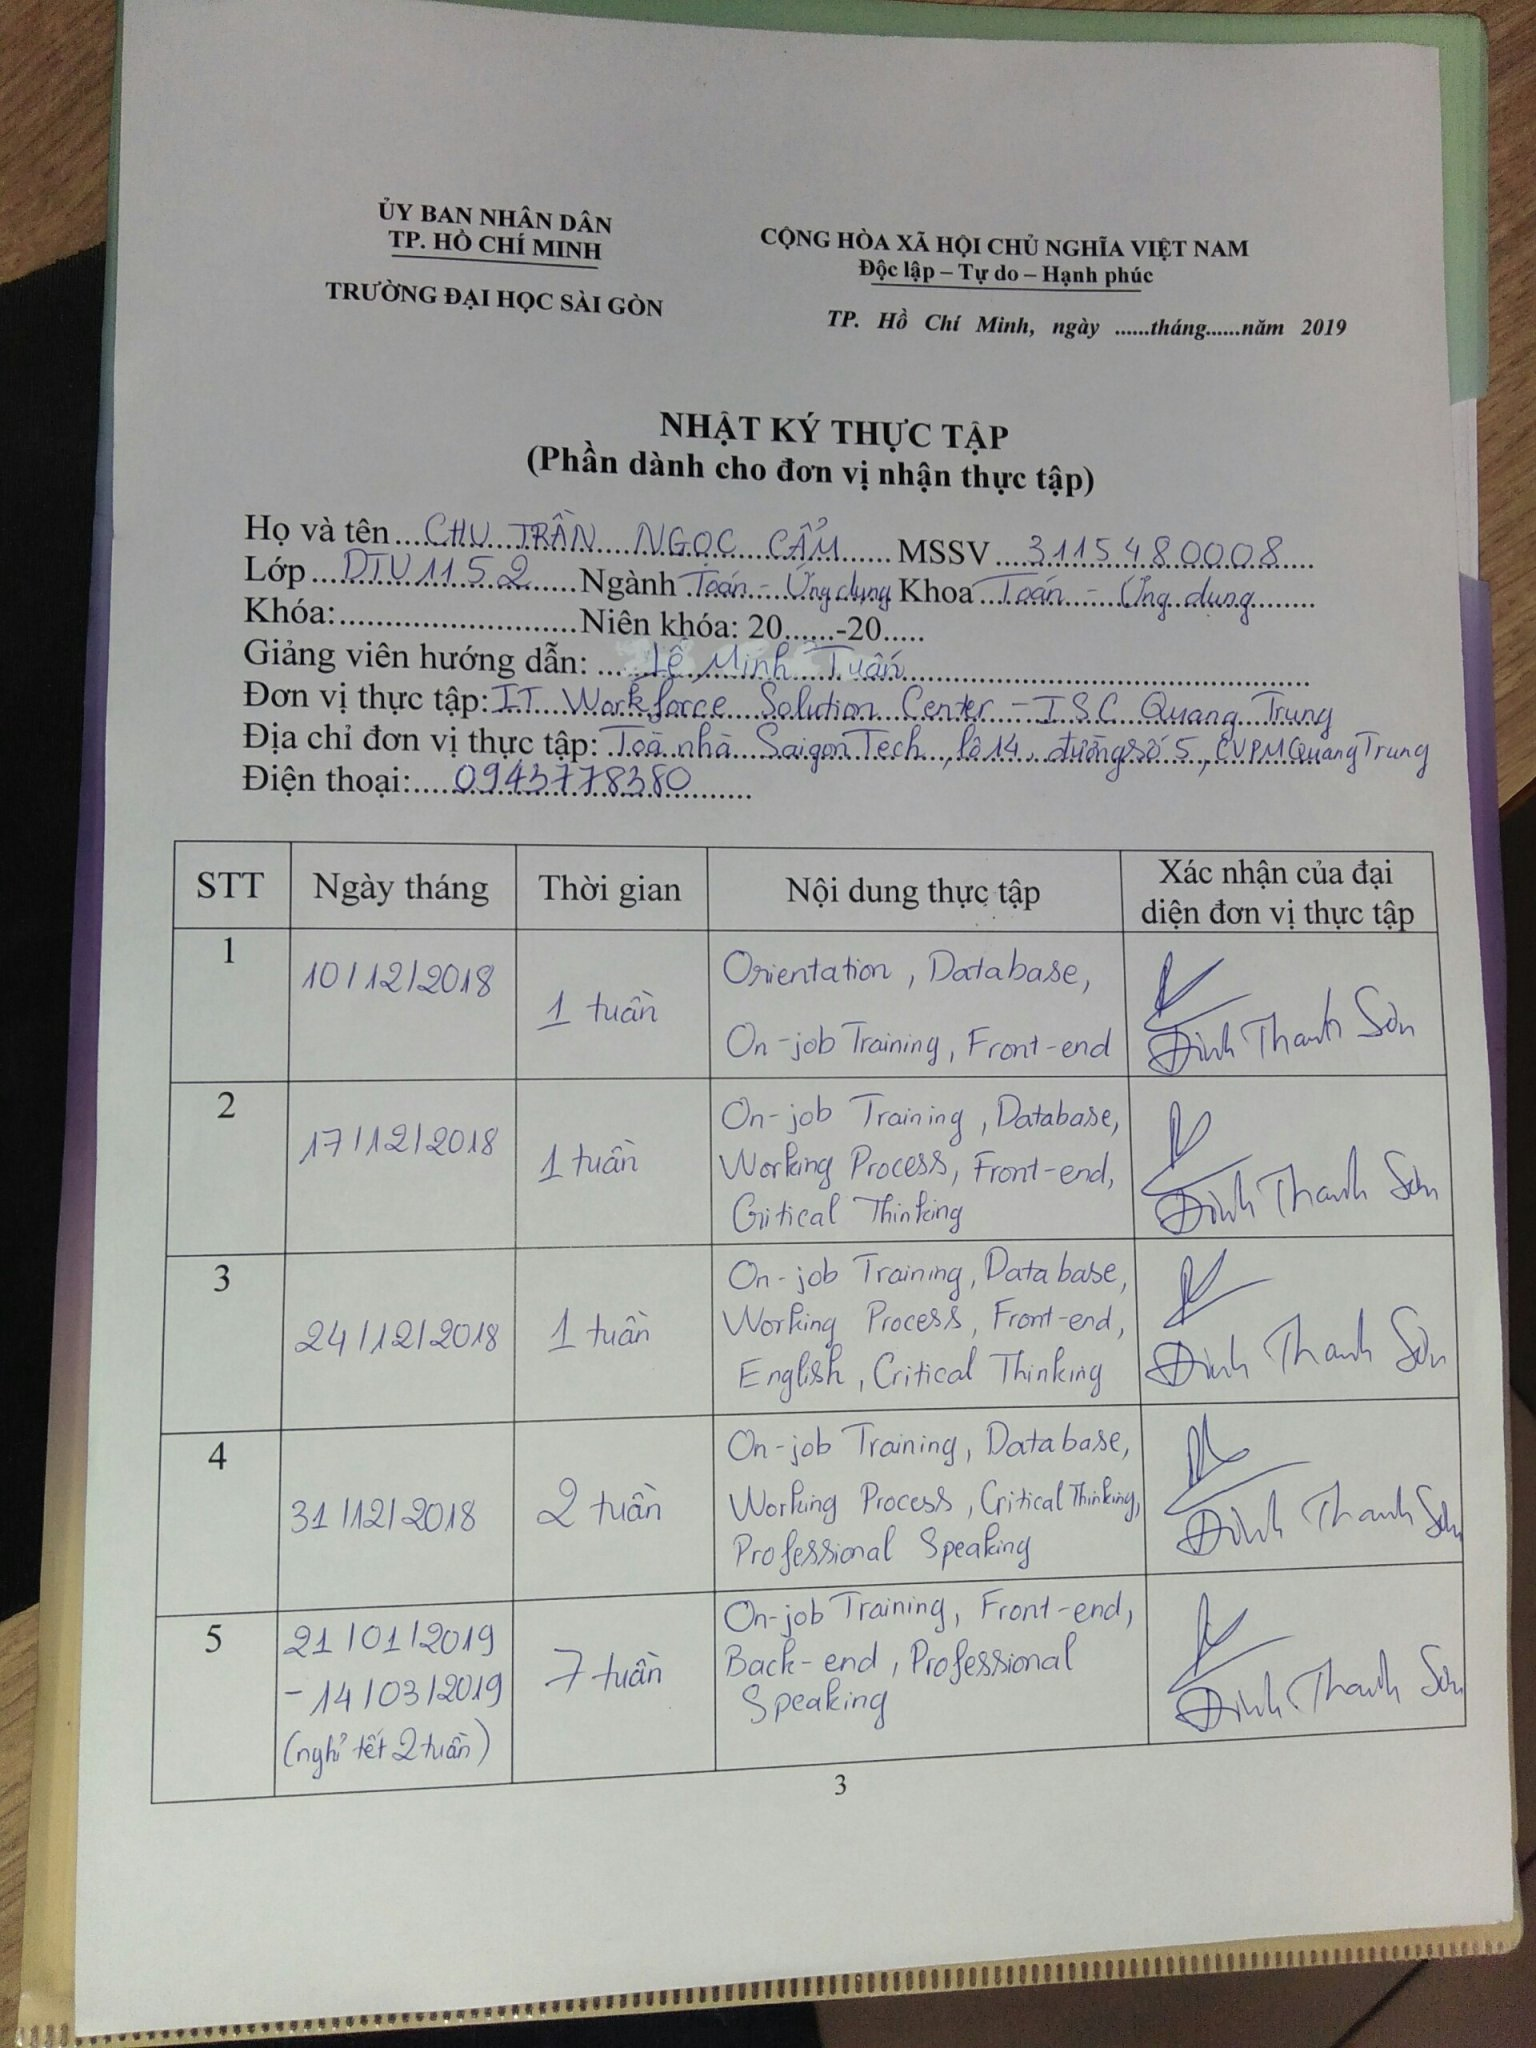 ỦY BAN NHÂN DÂN
TP. HỒ CHÍ MINH
TRƯỜNG ĐẠI HỌC SÀI GÒN
CỘNG HÒA XÃ HỘI CHỦ NGHĨA VIỆT NAM
Độc lập – Tự do – Hạnh phúc
TP. Hồ Chí Minh, ngày ......tháng......năm 2019
NHẬT KÝ THỰC TẬP
(Phần dành cho đơn vị nhận thực tập)
Họ và tên CHU TRẦN NGỌC CẨM MSSV 3115480008
Lớp DTU1152 Ngành Toán - Ứng dụng Khoa Toán - Ứng dụng
Khóa: Niên khóa: 20......-20.....
Giảng viên hướng dẫn: Lê Minh Tuấn
Đơn vị thực tập: IT Workforce Solution Center - ISC Quang Trung
Địa chỉ đơn vị thực tập: Toà nhà SaigonTech, lô 14, đường số 5, CVPM Quang Trung
Điện thoại: 0943778380
STT Ngày tháng Thời gian Nội dung thực tập Xác nhận của đại diện đơn vị thực tập
1 10/12/2018 1 tuần
Orientation, Database,
On-job Training, Front-end
Đinh Thanh Sơn
2 17/12/2018 1 tuần
On-job Training, Database,
Working Process, Front-end,
Critical Thinking
Đinh Thanh Sơn
3 24/12/2018 1 tuần
On-job Training, Database,
Working Process, Front-end,
English, Critical Thinking
Đinh Thanh Sơn
4 31/12/2018 2 tuần
On-job Training, Database,
Working Process, Critical Thinking,
Professional Speaking
Đinh Thanh Sơn
5 21/01/2019
- 14/03/2019
(nghỉ tết 2 tuần)
7 tuần
On-job Training, Front-end,
Back-end, Professional
Speaking
Đinh Thanh Sơn
3